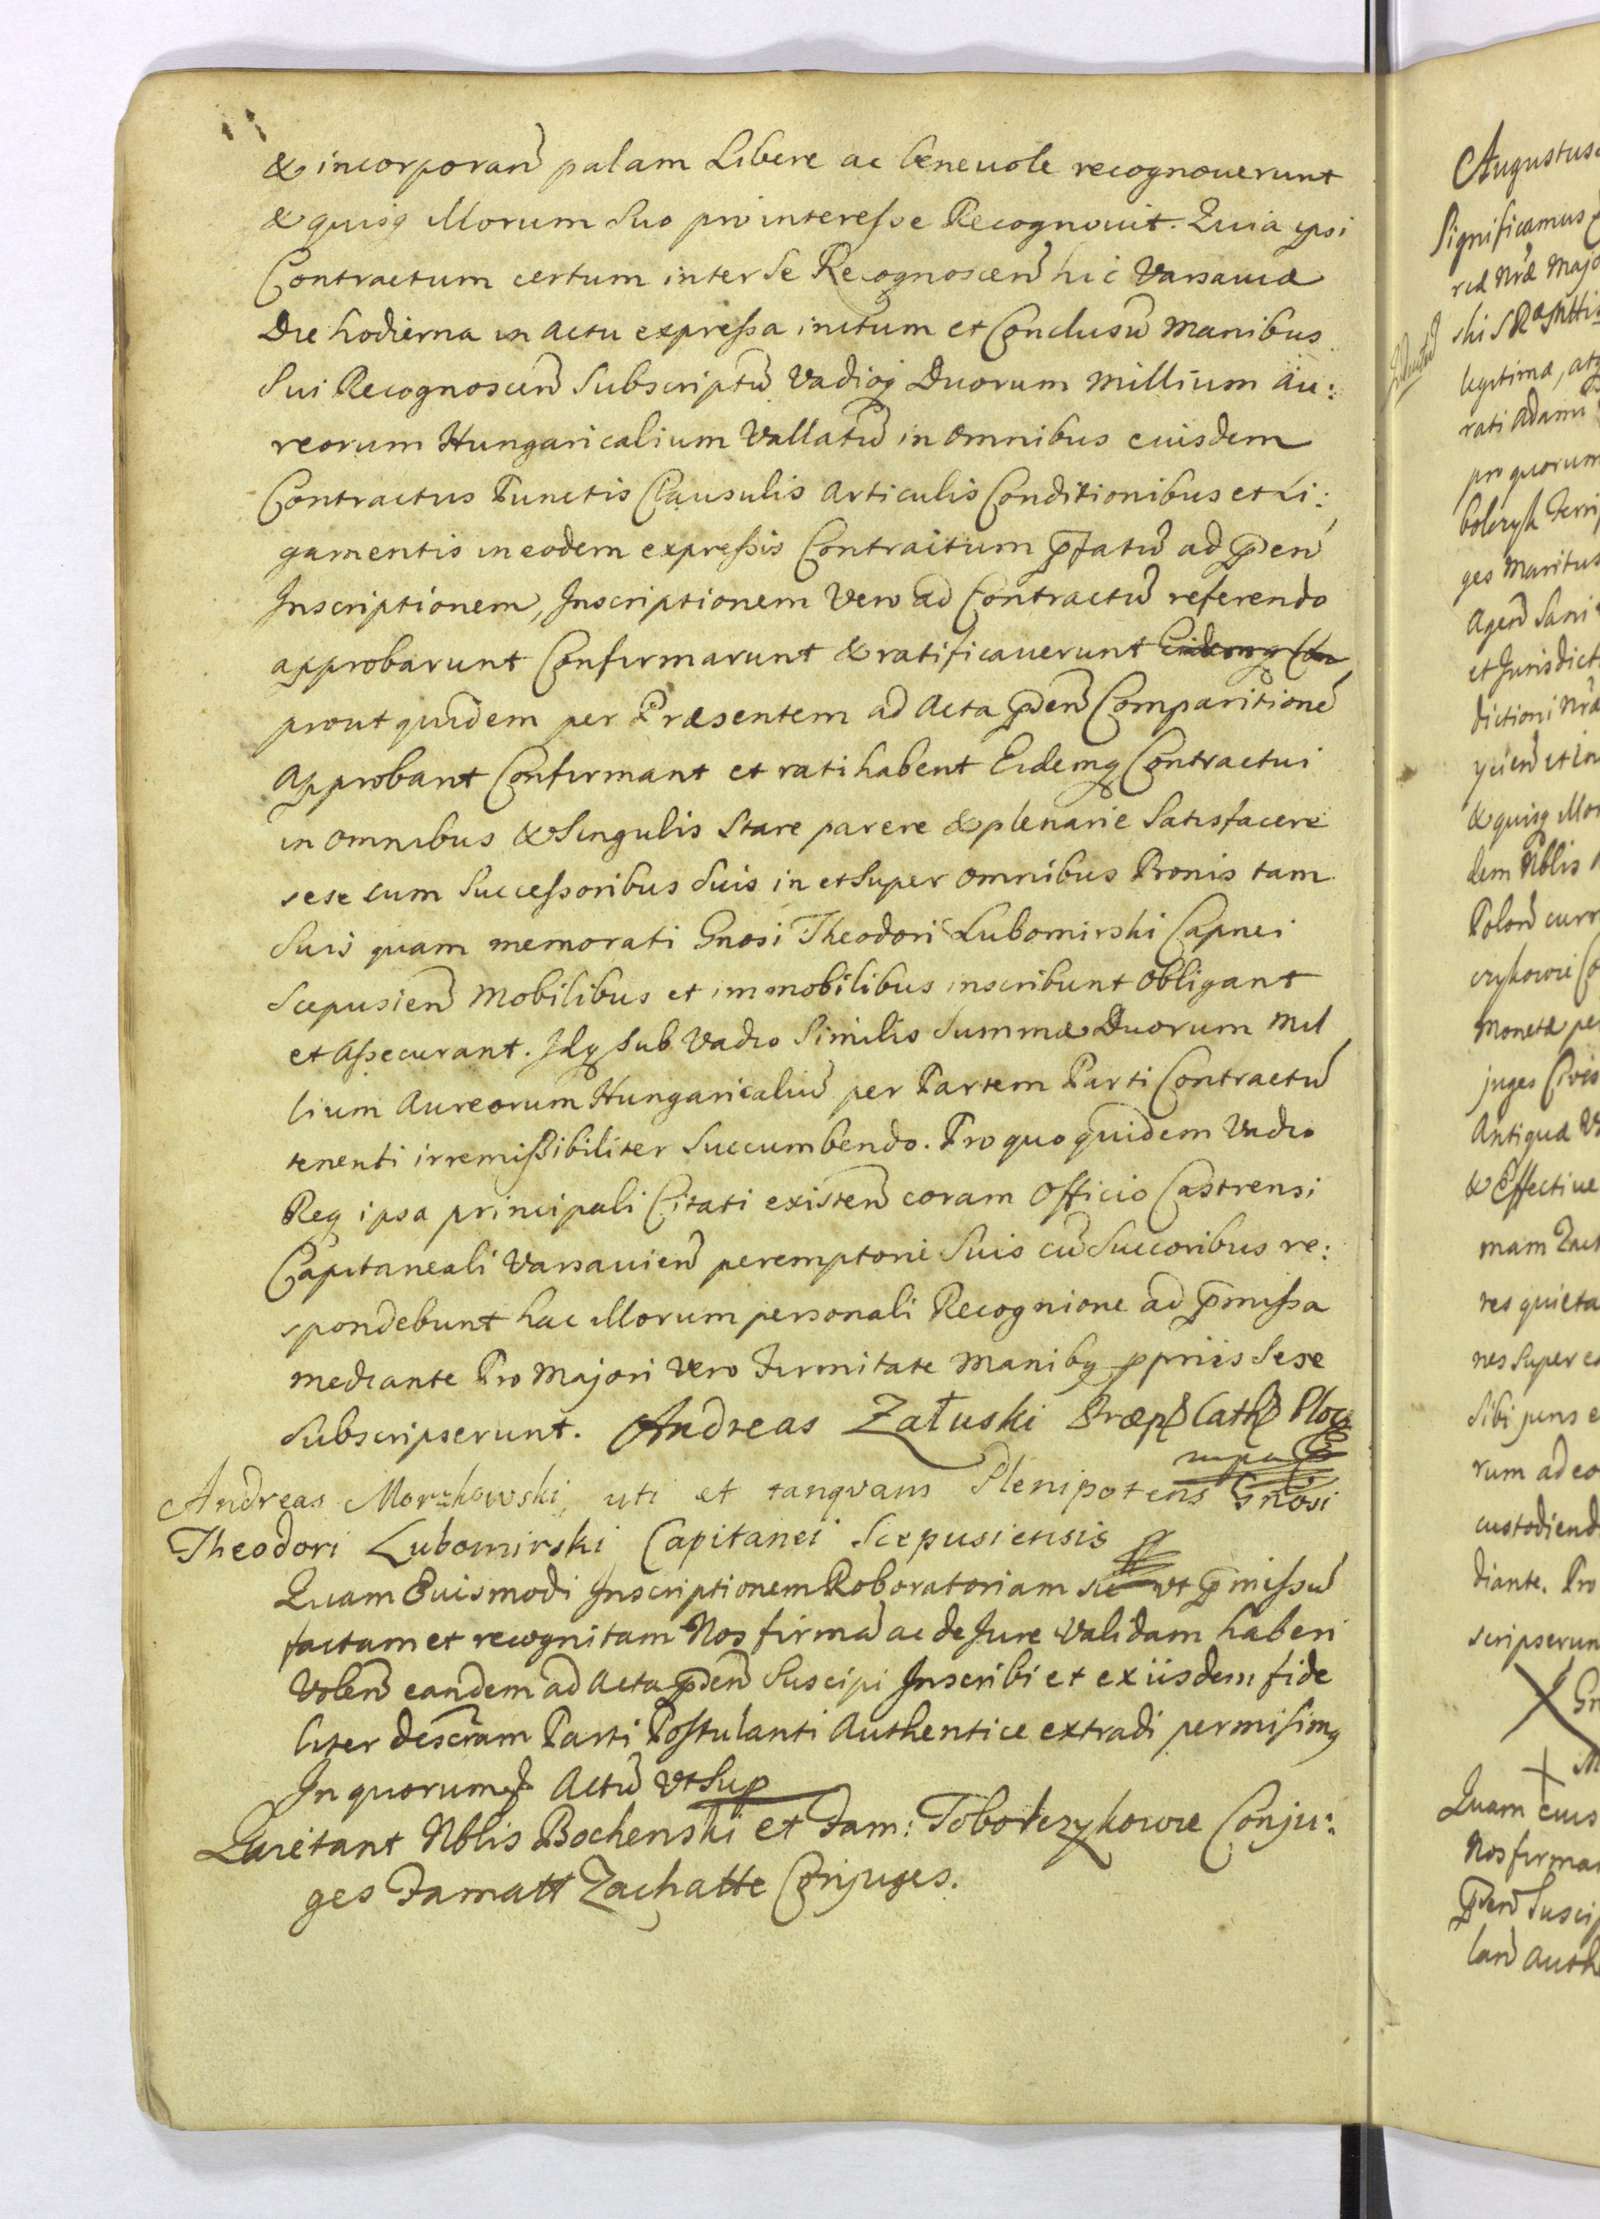 & incorporan̄ palam Libere ac beneuole recognouerunt
& quisq̨ Illorum Suo pro interesse Recognouit. Quia ipsi
Contractum certum inter Se Recognoscen̄ hic Varsauiæ
Die hodierna in actu expressa initum et Conclusū manibus
Sui Recognoscen̄ Subscriptū Vadioq̨ Duorum millium Au:
reorum Hungaricalium Vallatū in omnibus euisdem
Contractus Punctis Clausulis articulis Conditionibus et Li:
gamentis in eodem expressis Contractum p̄fatū ad p̄sen̄
Inscriptionem, Inscriptionem Vero ad Contractū referendo
approbarunt Confirmarunt & ratificauerunt Eidemq̨ Con
prout quidem per Præsentem ad Acta p̄sen̄ Comparitionē
Approbant Confirmant et ratihabent Eidemq̨ Contractui
in omnibus & Singulis Stare parere & plenarie Satisfacere
sese cum Successoribus Suis in et Super omnibus Bonis tam
Suis quam memorati Gnosi Theodori Lubomirski Capnei
Scepusien̄ mobilibus et immobilibus inscribunt obligant
et assecurant. Idq̨ Sub Vadio Similis Summæ Duorum mil
lium Aureorum Hungaricaliū per Partem Parti Contractū
tenenti irremissibiliter Succumbendo. Pro quo quidem Vadio
Req̨ ipsa principali Citati existen̄ coram officio Castrensi
Capitaneali Varsauien̄ peremptorie Suis cū Succoribus re:
spondebunt hac Illorum personali Recognione ad p̄missa
mediante Pro Majori vero Firmitate manibq̨ ppriis Sese
Subscripserunt. Andreas Załuski Præp. Cath. Ploc.
mpa
Andreas Morzkowski, uti et tanqvam Plenipotens Gnosi
Theodori Lubomirski Capitanei Scepusiensis
Quam Euismodi Inscriptionem Roboratoriam sic vt p̄missū
factam et recognitam Nos firmā ac de Jure Validam haberi
Volen̄ eandem ad Acta p̄sen̄ Suscipi Inscribi et ex iisdem fide
liter descram Parti Postulanti Authentice extradi permisimq̨
In quorum Actū Vt Sup
Quietant Nblis Bochenski et Fam: Tobolczykowie Conju:
ges Famatt Zachatte Conjuges.
Augustus
Significamus
legitima,
rati Adami
pro quorum
ges maritus
dem Nblis
monetæ
juges
Antiquæ
& Effectiue
res quieta
nes Super
rum ad eo
custodiend
diante. Pro
scripserun
Quam euis
Nos firma
p̄sen̄ Susci